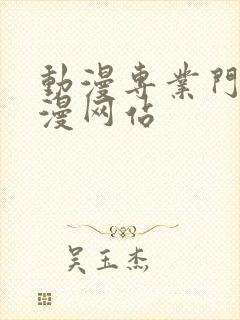 動漫専業門
漫网佔
吴玉杰